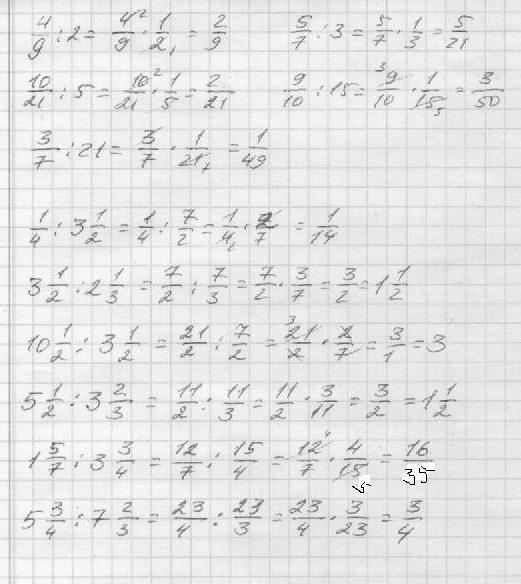 4/9 : 2 = 4²/9 · 1/2₁ = 2/9    5/7 : 3 = 5/7 · 1/3 = 5/21
10/21 : 5 = 10²/21 · 1/5 = 2/21    9/10 : 15 = ³9/10 · 1/15₅ = 3/50
3/7 : 21 = 3/7 · 1/21₇ = 1/49
1/4 : 3 1/2 = 1/4 : 7/2 = 1/4₂ · 2/7 = 1/14
3 1/2 : 2 1/3 = 7/2 : 7/3 = 7/2 · 3/7 = 3/2 = 1 1/2
10 1/2 : 3 1/2 = 21/2 : 7/2 = ³21/2 · 2/7 = 3/1 = 3
5 1/2 : 3 2/3 = 11/2 : 11/3 = 11/2 · 3/11 = 3/2 = 1 1/2
1 5/7 : 3 3/4 = 12/7 : 15/4 = 12⁴/7 · 4/15₅ = 16/35
5 3/4 : 7 2/3 = 23/4 : 23/3 = 23/4 · 3/23 = 3/4